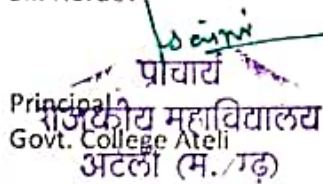 प्राचार्य
Principal
राजकीय महाविद्यालय
Govt. College Ateli
अटेली (म./गढ़)